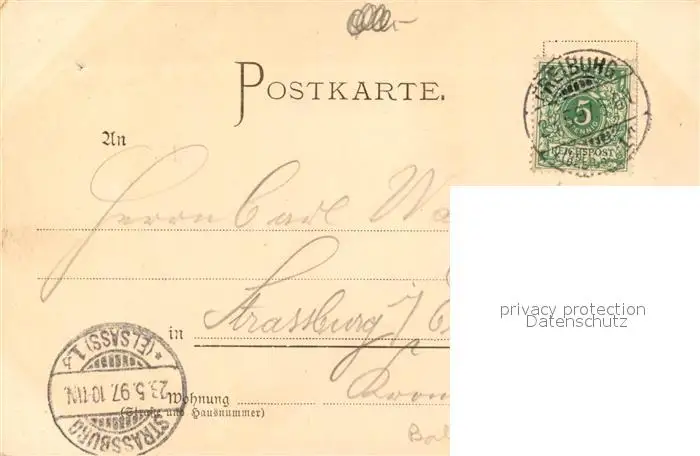 POSTKARTE.
FREIBURG
5
PFENNIG
REICHSPOST
An
Herrn Carl
privacy protection
Datenschutz
in Strassburg i/E
Wohnung
(Straße und Hausnummer)
STRASSBURG
23.5.97.10-11N.
*(ELSASS) 1.*